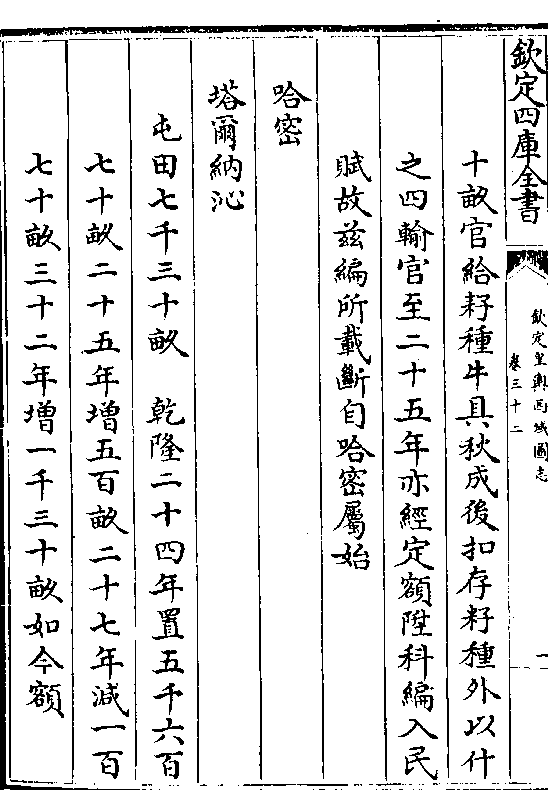 欽定四庫全書
欽定皇輿西域圖志
卷三十二
一
十畝官給籽種牛具秋成後扣存籽種外以什
之四輸官至二十五年亦經定額陞科編入民
賦故兹編所載斷自哈密屬始
哈密
塔爾納沁
屯田七千三十畝　乾隆二十四年置五千六百
七十畝二十五年增五百畝二十七年減一百
七十畝三十二年增一千三十畝如今額